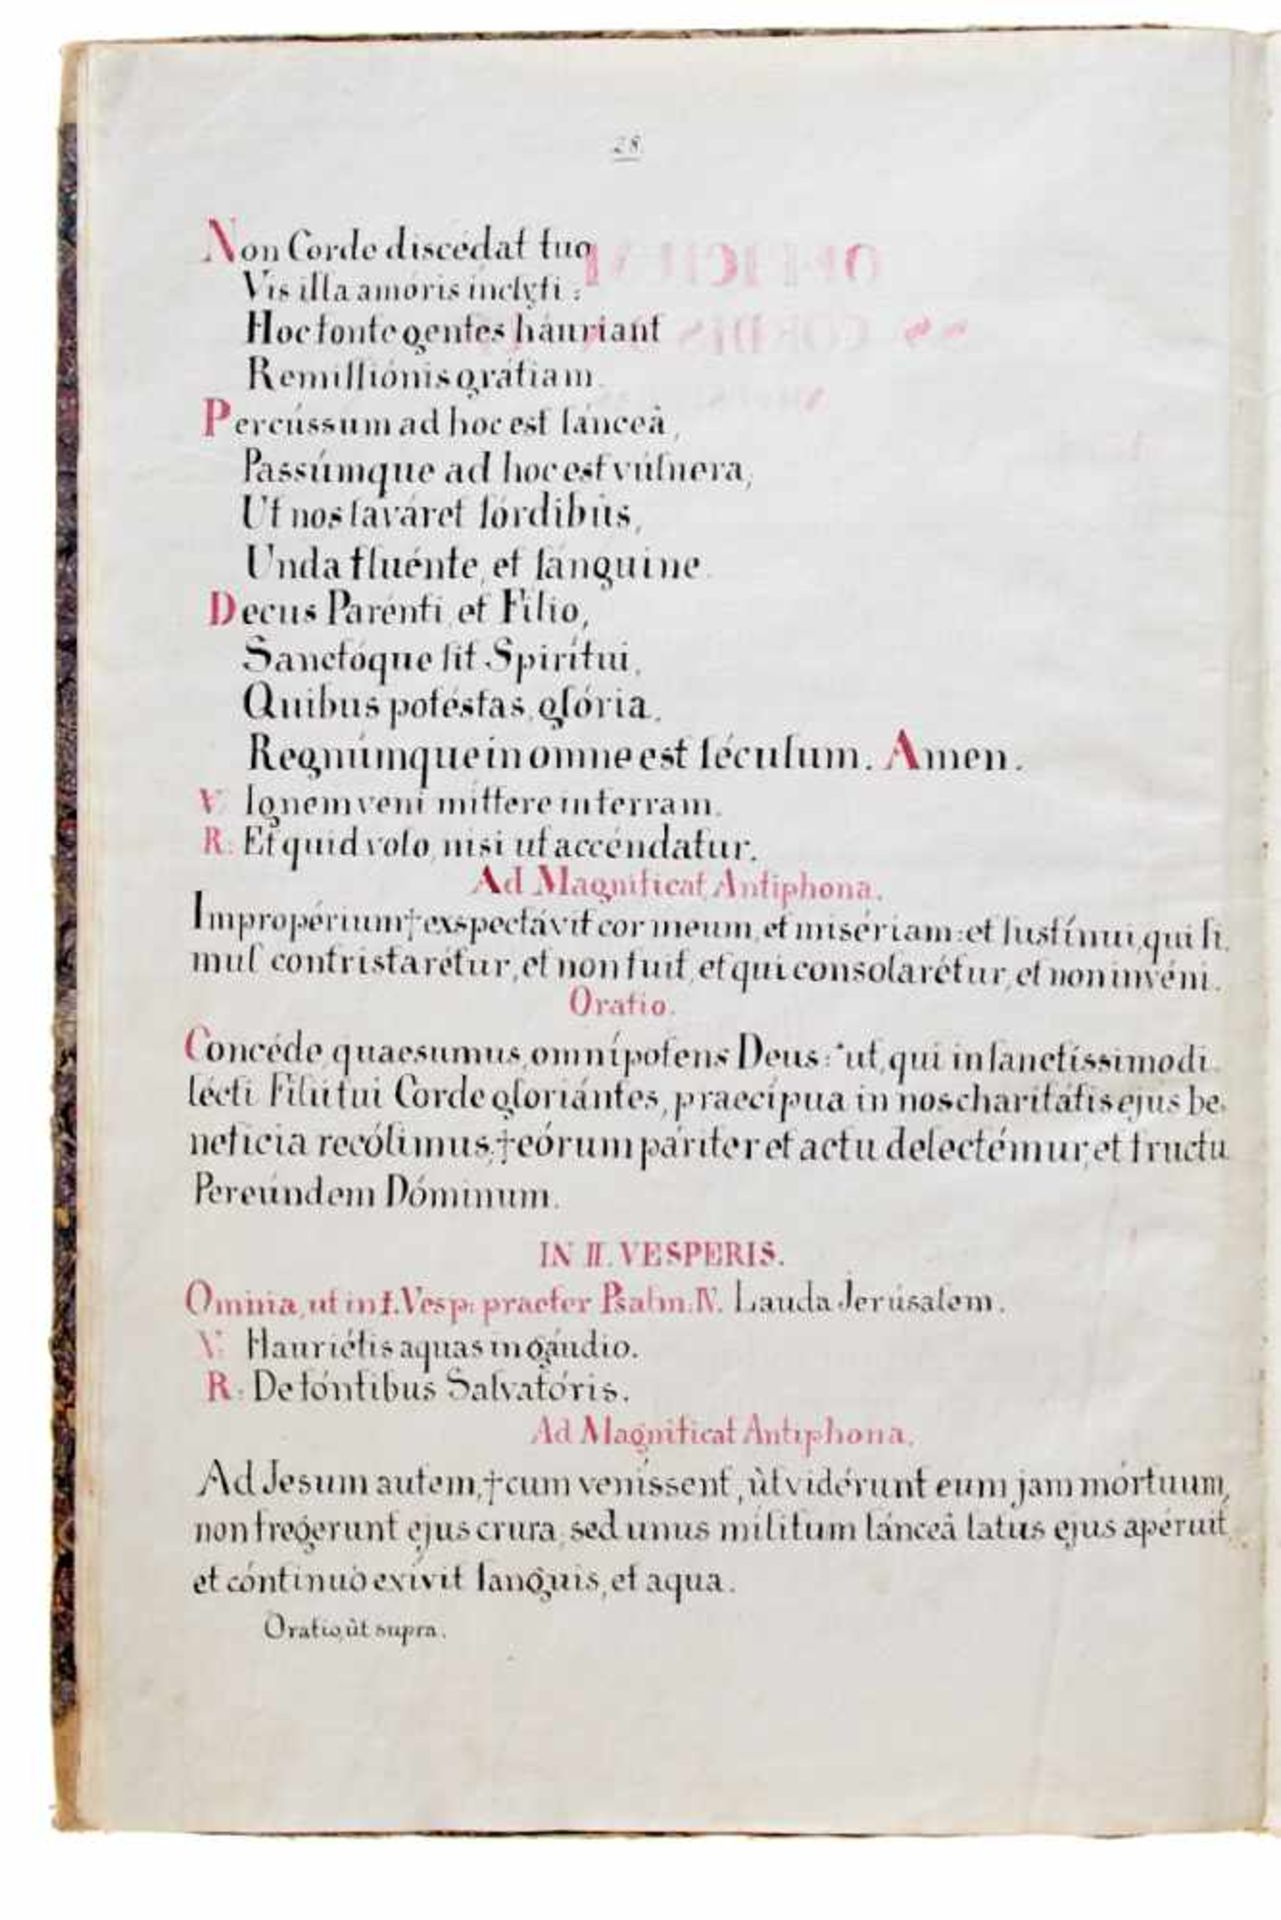 28.
Non Corde discédat tuo
Vis illa amóris ínclyti:
Hoc fonte gentes háuriant
Remissiónis grátiam.
Percússum ad hoc est lánceâ,
Passúmque ad hoc est vúlnera,
Ut nos laváret sórdibùs,
Unda fluénte, et sánguine.
Decus Parénti, et Filio,
Sanctóque sit Spirítui,
Quibus potéstas, glória,
Regnúmque in omne est séculum. Amen.
V. Ignem veni míttere in terram.
R: Et quid volo, nisi ut accéndatur.
Ad Magnificat, Antiphona.
Impropérium † exspectávit cor meum, et misériam: et sustínui, qui si-
mul contristarétur, et non fuit, et qui consolarétur, et non invéni.
Oratio.
Concéde, quaesumus, omnípotens Deus: * ut, qui in sanctíssimo di-
lécti Filii tui Corde gloriántes, praecípua in nos charitátis ejus be-
nefícia recólimus, † eórum páriter et actu delectémur, et fructu.
Per eúndem Dóminum.
IN II. VESPERIS.
Omnia, ut in I. Vesp: praeter Psalm: IV. Lauda Jerúsalem.
V: Hauriétis aquas in gáudio.
R: De fóntibus Salvatóris.
Ad Magnificat Antiphona.
Ad Jesum autem, † cum venissent, ùt vidérunt eum jam mórtuum,
non fregerunt ejus crura, sed unus mílitum lánceâ latus ejus apéruit,
et cóntinuò exívit sanguis, et aqua.
Oratio, ùt supra.